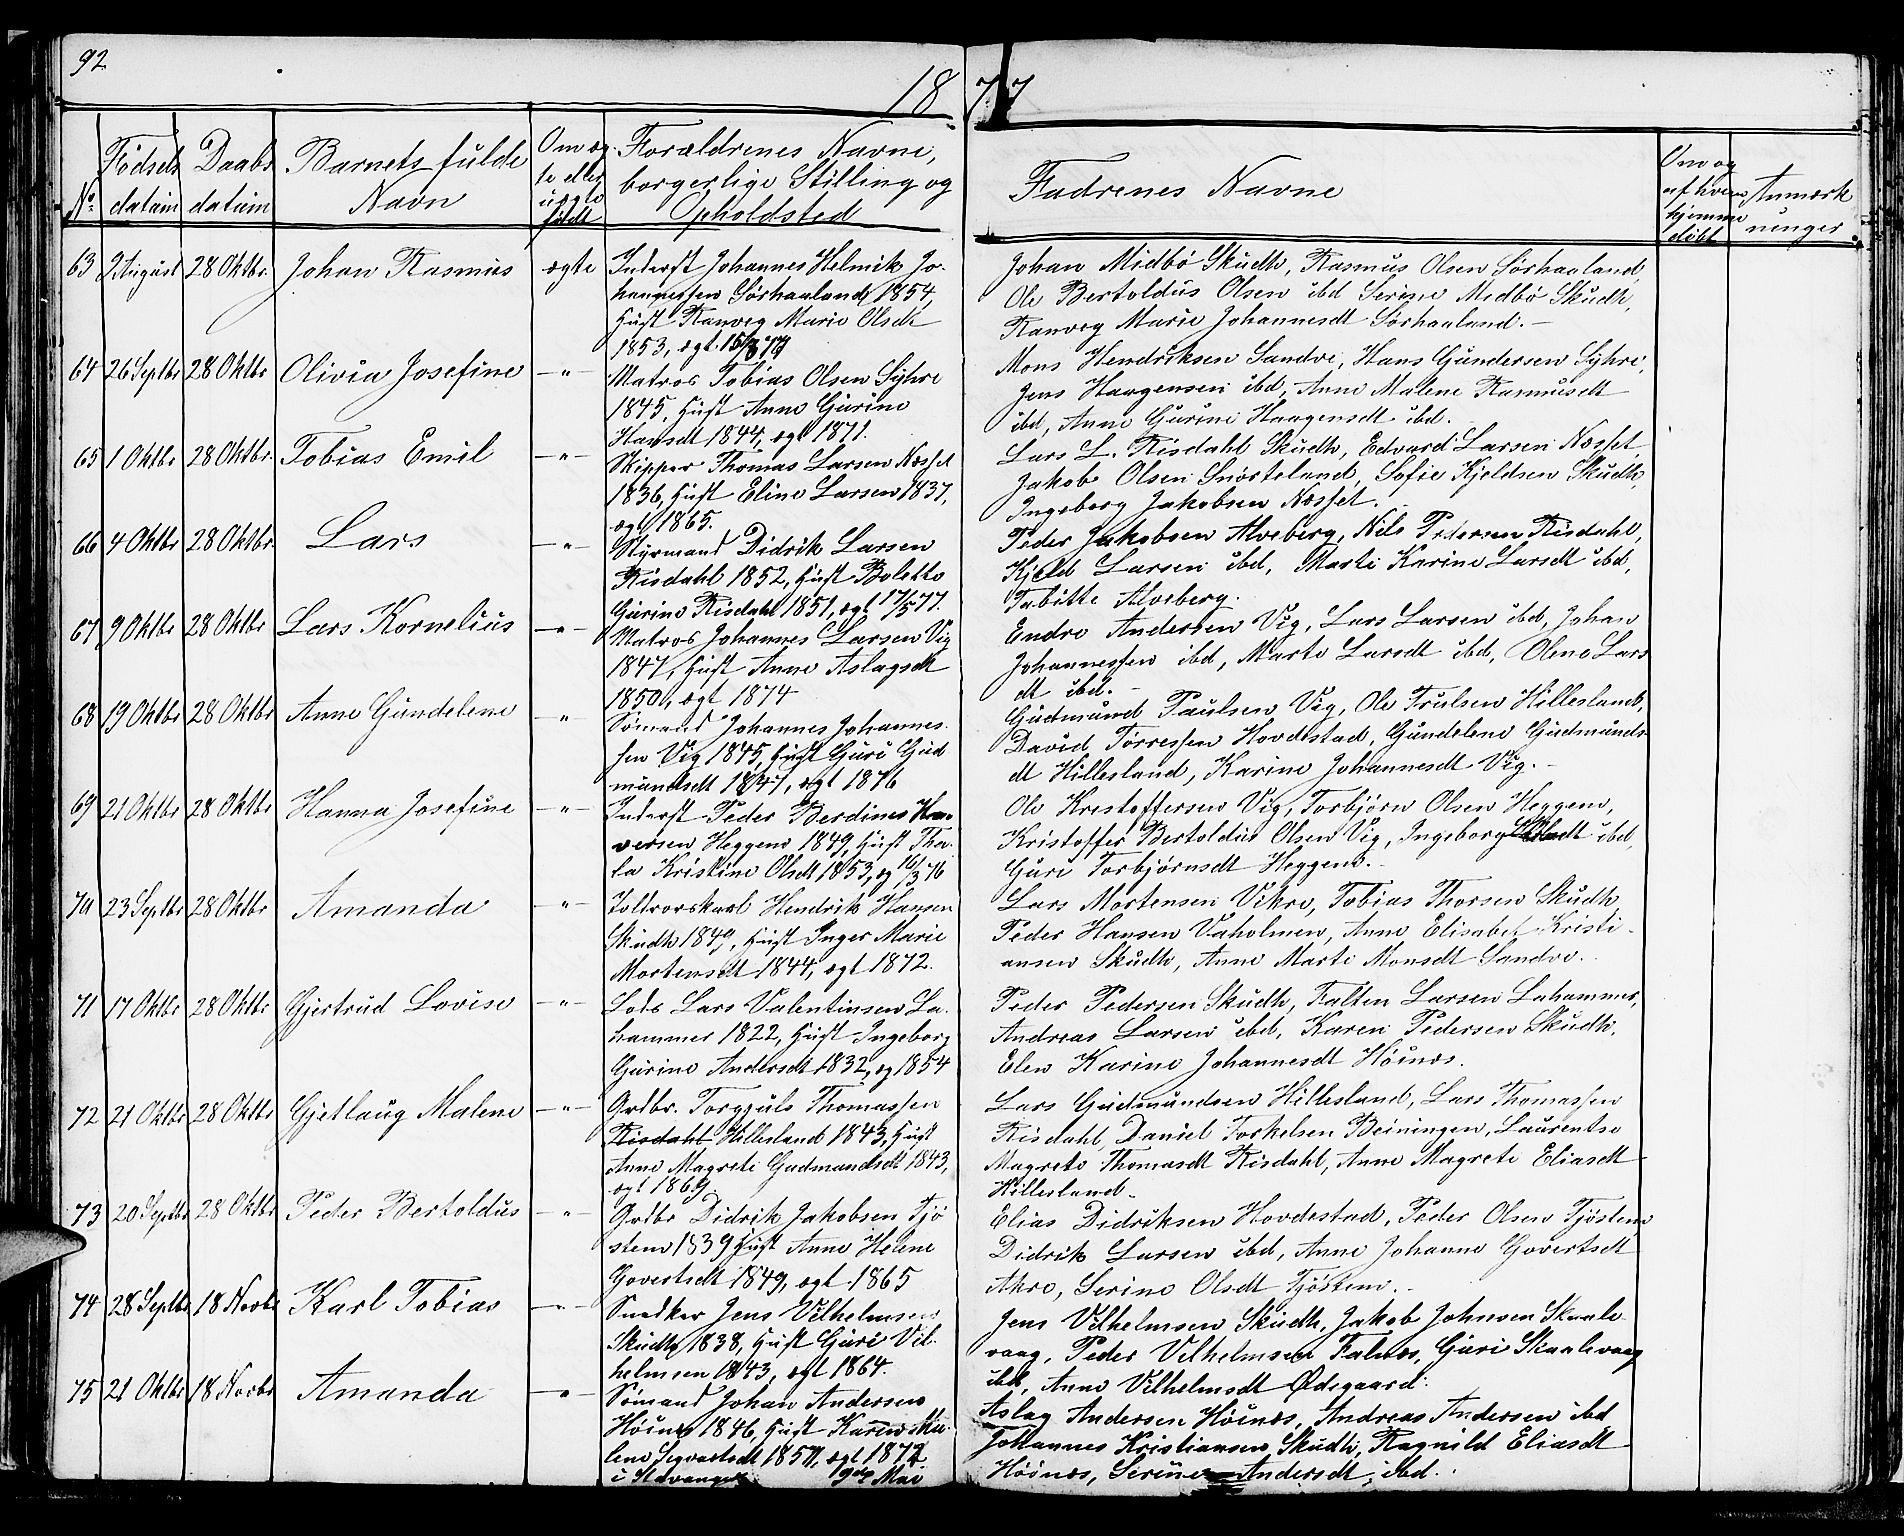 92
1877
No
Fødsels datum
Daabs datum
Barnets fulde Navn
Om ægte eller uægte født
Forældrenes Navne, borgerlige Stilling og Opholdsted
Fadrenes Navne
Om og af hvem hjemmedøbt
Anmærkninger
63 2 August 28 Oktbr. Johan Rasmus ægte
Inderst Johannes Helmik Jo-
hannessen Sørhaaland 1854,
Hust Ranveg Marie Olsdt
1853, ægt. 77
Johan Midbö Skudh, Rasmus Olsen Sørhaaland,
Ole Bertoldus Olsen ibd Serine Midbö Skudh,
Ranveg Marie Johannesdt Sørhaaland.-
64 26 Septbr 28 Oktbr Olivia Josefine -"-
Matros Tobias Olsen Syhre
1845, Hust Anne Gurine
Hansdt 1844, ægt 1871.
Mons Hendriksen Sandve, Hans Gundersen Syhre,
Jens Haagensen ibd, Anne Malene Rasmusdt
ibd, Anne Gurine Haagensdt ibd.
65 1 Oktbr 28 Oktbr. Tobias Emil -"-
Skipper Thomas Larsen Næsset
1836, Hust Eline Larsen 1837,
ægt 1865.
Lars L. Risdahl Skudh, Edvard Larsen Næsset,
Jakob Olsen Snørteland, Sofie Kjeldsen Skudh,
Ingeborg Jakobsen Næsset.
66 4 Oktbr 28 Oktbr. Lars -"-
Styrmand Didrik Larsen
Risdahl 1852, Hust Bolette
Gurine Risdahl 1851, ægt 17/5 77.
Peder Jakobsen Alveberg, Nils Pedersen Risdahl,
Kjeld Larsen ibd, Marte Karine Larsdt ibd,
Tabitte Alveberg.
67 9 Oktbr 28 Oktbr Lars Kornelius -"-
Matros Johannes Larsen Vig
1847, Hust Anne Aslagsdt
1850, ægt 1874
Endre Andersen Vig, Lars Larsen ibd, Johan
Johannessen ibd, Marte Larsdt ibd, Olene Lars
dt ibd.-
68 19 Oktbr 28 Oktbr Anne Gundelene -"-
Sømand Johannes Johannes-
sen Vig 1845, Hust Guri Gud
mundsdt 1847, ægt 1876
Gudmund Paulsen Vig, Ole Trulsen Hillesland,
David Tørressen Hovdestad, Gundelene Gudmunds-
dt Hillesland, Karine Johannesdt Vig.-
69 21 Oktbr 28 Oktbr Hanna Josefine -"-
Inderst Peder Berdines
versen Heggem 1849, Hust Tha-
la Kristine Olsdt 1853, æg 16/3 76
Ole Krestoffersen Vig, Torbjörn Olsen Heggem,
Kristoffer Bertoldus Olsen Vig, Ingeborg ibd,
Guri Torbjörnsdt Heggem.-
70 23 Septbr 28 Oktbr Amanda -"-
Toldrorskarl Hendrik Hansen
Skudh 1849, Hust Inger Marie
Mortensdt 1844, ægt 1872.
Lars Mortensen Vikre, Tobias Thorsen Skudh,
Peder Hansen Vaholmen, Anne Elisabet Kristi-
ansen Skudh, Anne Marte Monsdt Sandve.
71 17 Oktbr 28 Oktbr Gjertrud Lovise -"-
Lods Lars Valentinsen La-
hammer 1822, Hust Ingeborg
Gurine Andersdt 1832, æg 1854
Peder Pedersen Skudh, Falten Larsen Lahammer,
Andreas Larsen ibd, Karen Pedersen Skudh,
Elen Karine Johannesdt Höinæs.
72 21 Oktbr 28 Oktbr Gjetlaug Malene -"-
Grdbr. Torgjuls Thomassen
Risdahl Hillesland 1843, Hust
Anne Magrete Gudmundsdt 1843,
ægt 1869.
Lars Gudmundsen Hillesland, Lars Thomassen
Risdahl, Daniel Torkelsen Beiningen, Laurentse
Magrete Thomasdt Risdahl, Anne Magrete Eliasdt
Hillesland.
73 20 Septbr 28 Oktbr Peder Bertoldus -"-
Grdbr Didrik Jakobsen Tjö
stem 1839 Hust Anne Helene
Govertsdt 1849, ægt. 1865
Elias Didriksen Hovdestad, Peder Olsen Tjöstem,
Didrik Larsen ibd, Anne Johanne Govertsdt
Akre, Serine Olsdt Tjöstem.-
74 28 Septbr 18 Novbr Karl Tobias -"-
Snedker Jens Vilhelmsen
Skudh 1838, Hust Guri Vil-
helmsen 1843, ægt 1864.
Jens Vilhelmsen Skudh, Jakob Johnsen Skaale-
vaag, Peder Vilhelmsen Falnes, Guri Skaalevaag
ibd, Anne Vilhelmsdt Ødegaard.
75 21 Oktbr 18 Novbr Amanda -"-
Sømand Johan Andersen
Höinæs 1846, Hust Karen Ma-
lene Segvartsdt 1850, ægt 1872
i Stavanger 19de Mai
Aslag Andersen Höinæs, Andreas Andersen ibd
Johannes Kristiansen Skudh, Ragnild Eliasdt
Höinæs, Serine Andersdt, ibd.